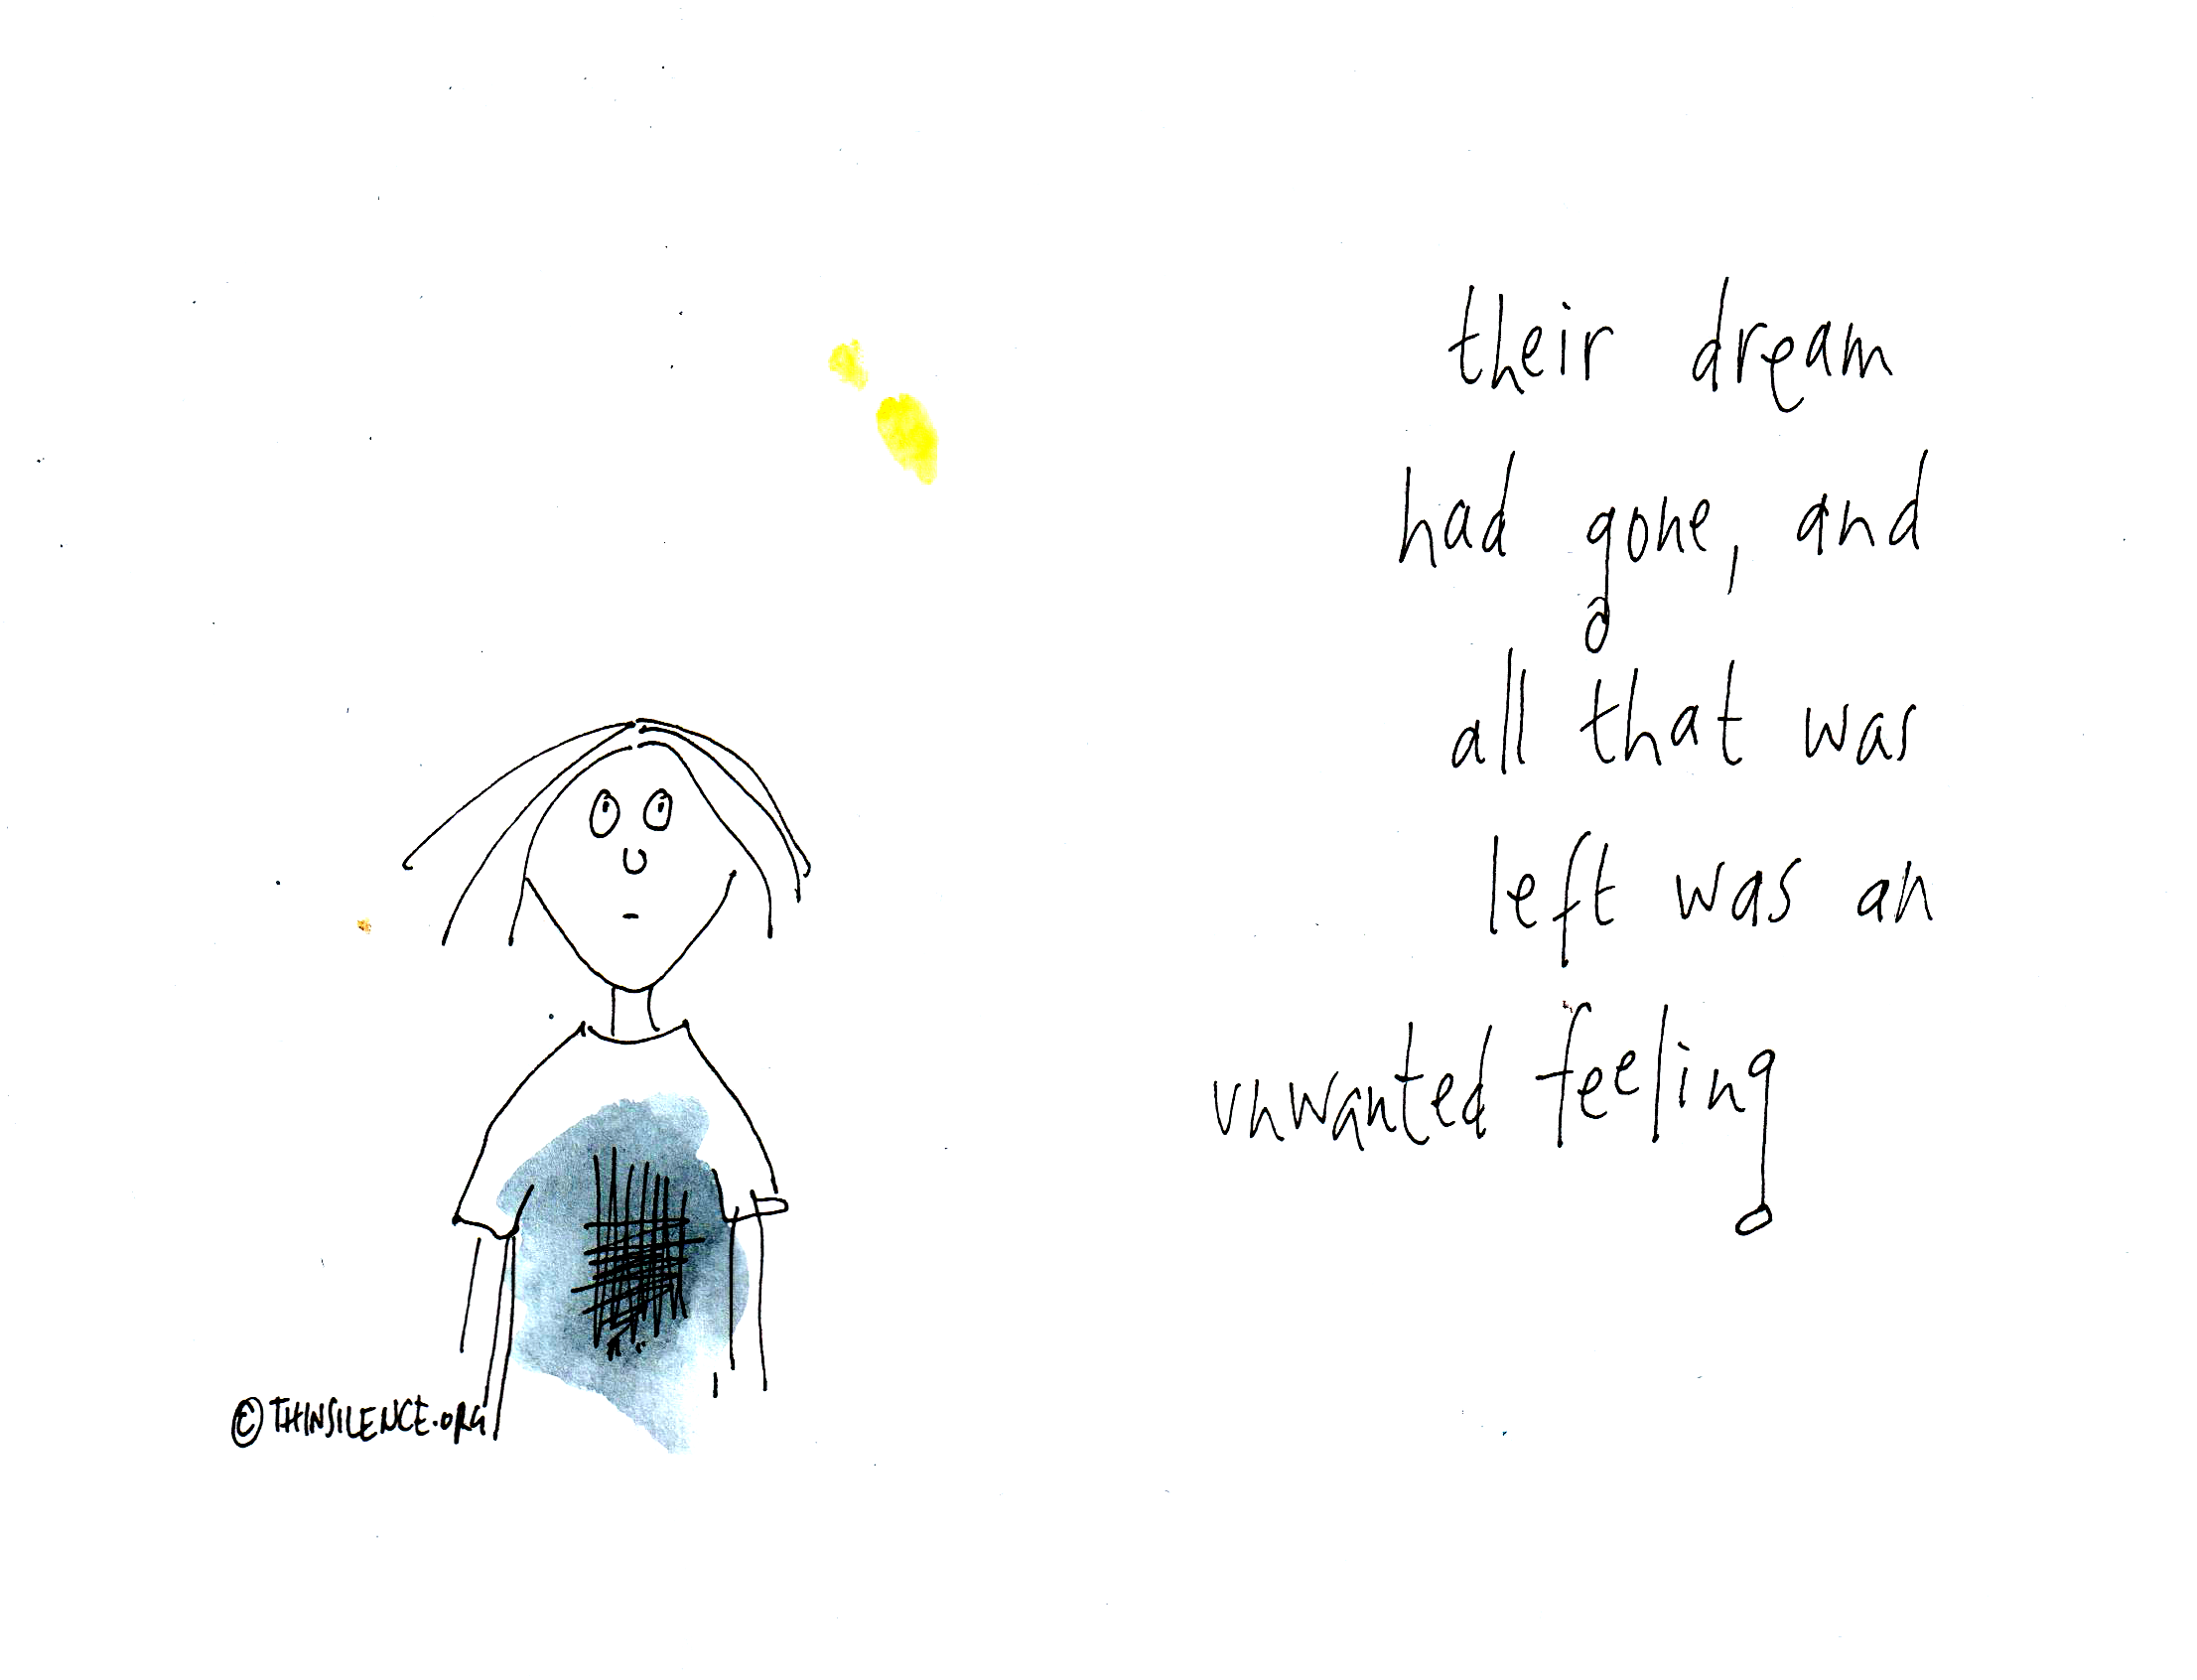 their dream
had gone, and
all that was
left was an
unwanted feeling
©THINSILENCE.ORG